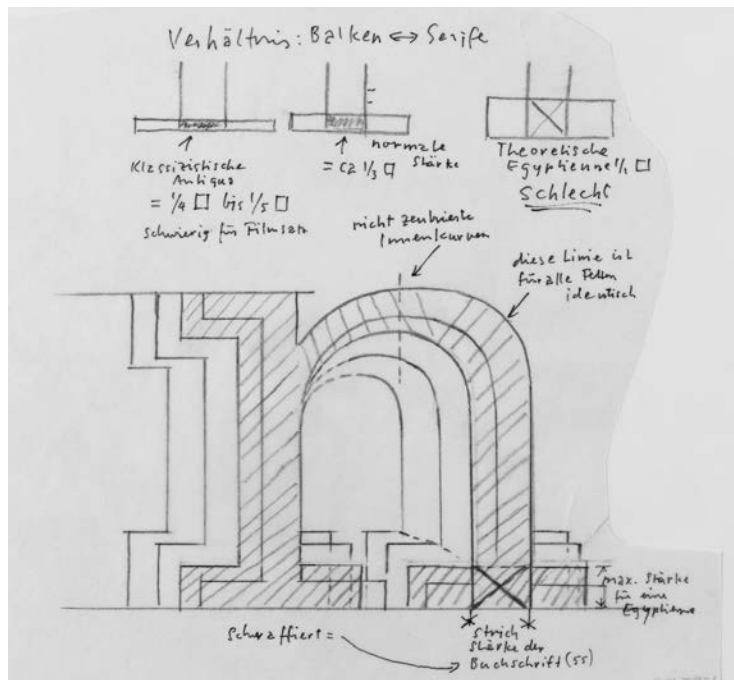 Verhältnis: Balken ⟷ Serife
Klassizistische
Antiqua
= 1/4 □ bis 1/5 □
Schwierig für Filmsatz
normale
Stärke
= ca 1/3 □
Theoretische
Egyptienne 1/1 □
Schlecht
nicht zentrierte
Innenkurven
diese Linie ist
für alle Fetten
identisch
max. Stärke
für eine
Egyptienne
Schraffiert =
Strich
Stärke der
Buchschrift (55)